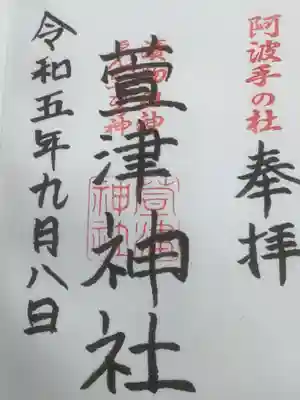 阿波手の社
奉拝
萱津神社
萱津
神社
令和五年九月八日